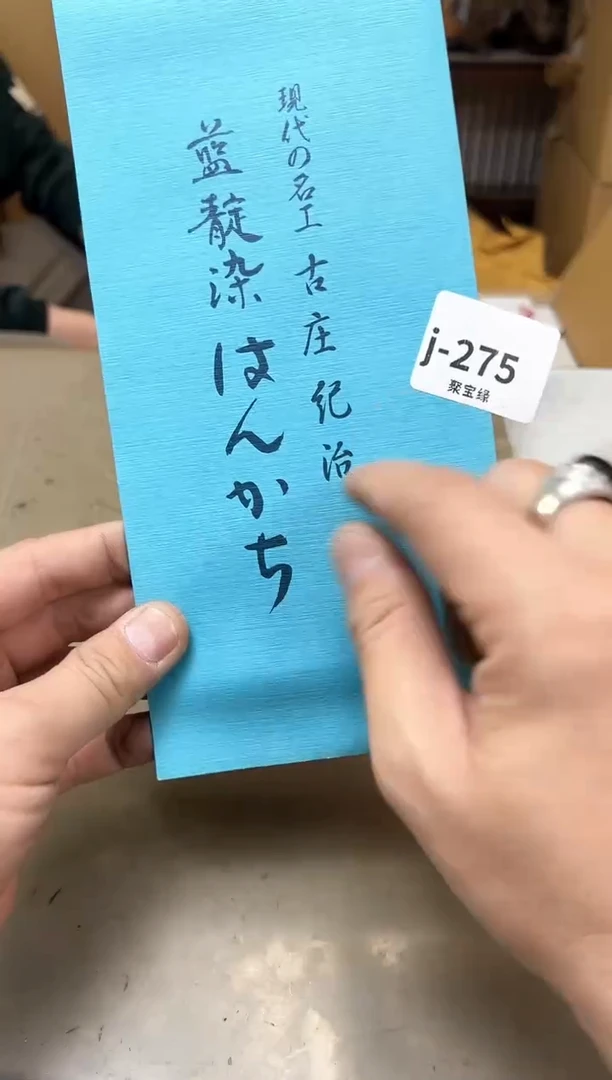 現代の名工 古庄紀治
藍靛染はんかち
j-275
聚宝缘